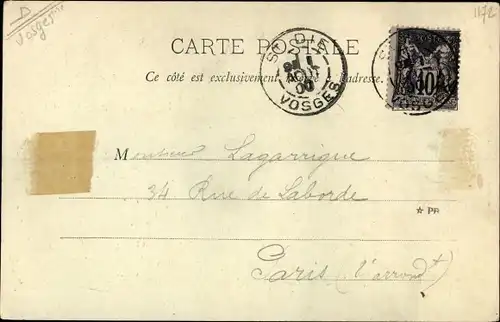 D
Vosges
1172
CARTE POSTALE
Ce côté est exclusivement à l'adresse.
ST DIÉ
VOSGES
10
Monsieur Lagarrigue
34 Rue de Laborde
★ PR
Paris (1er arrondt)